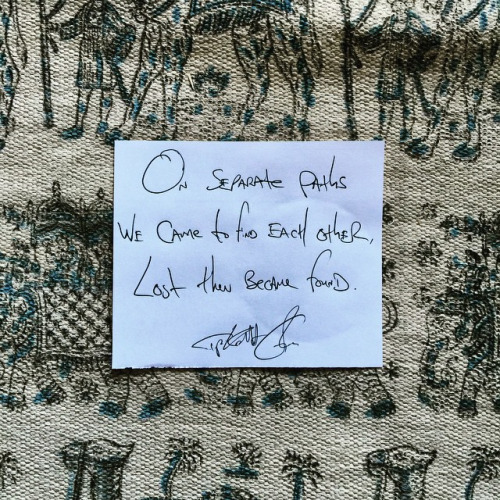 On SEPARATE PATHS
WE CAME to find EACH other,
Lost then Became found.